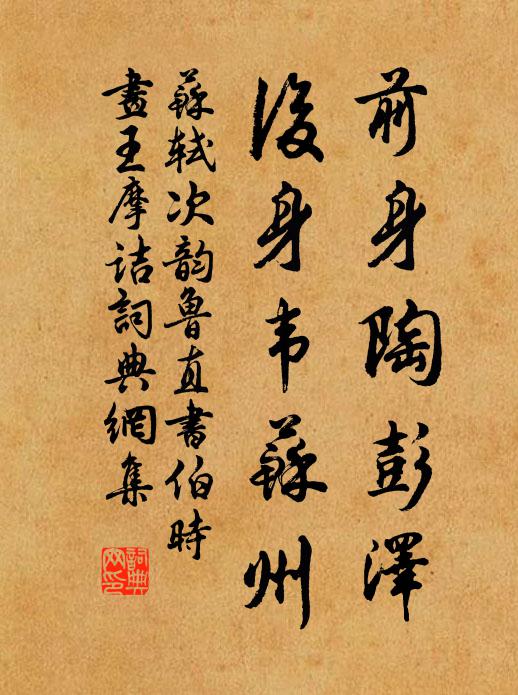 前身陶彭澤
後身韦蘇州
蘇軾次韵魯直書伯時
畫王摩詰詞典網集
詞典网印